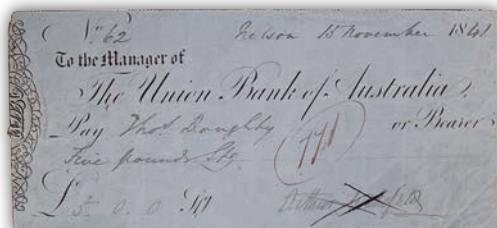 No. 62 Nelson 15 November 1841
To the Manager of
The Union Bank of Australia.
Pay Thos. Doughty or Bearer
Five pounds Stg
£ 5 . 0 . 0 Stg Arthur